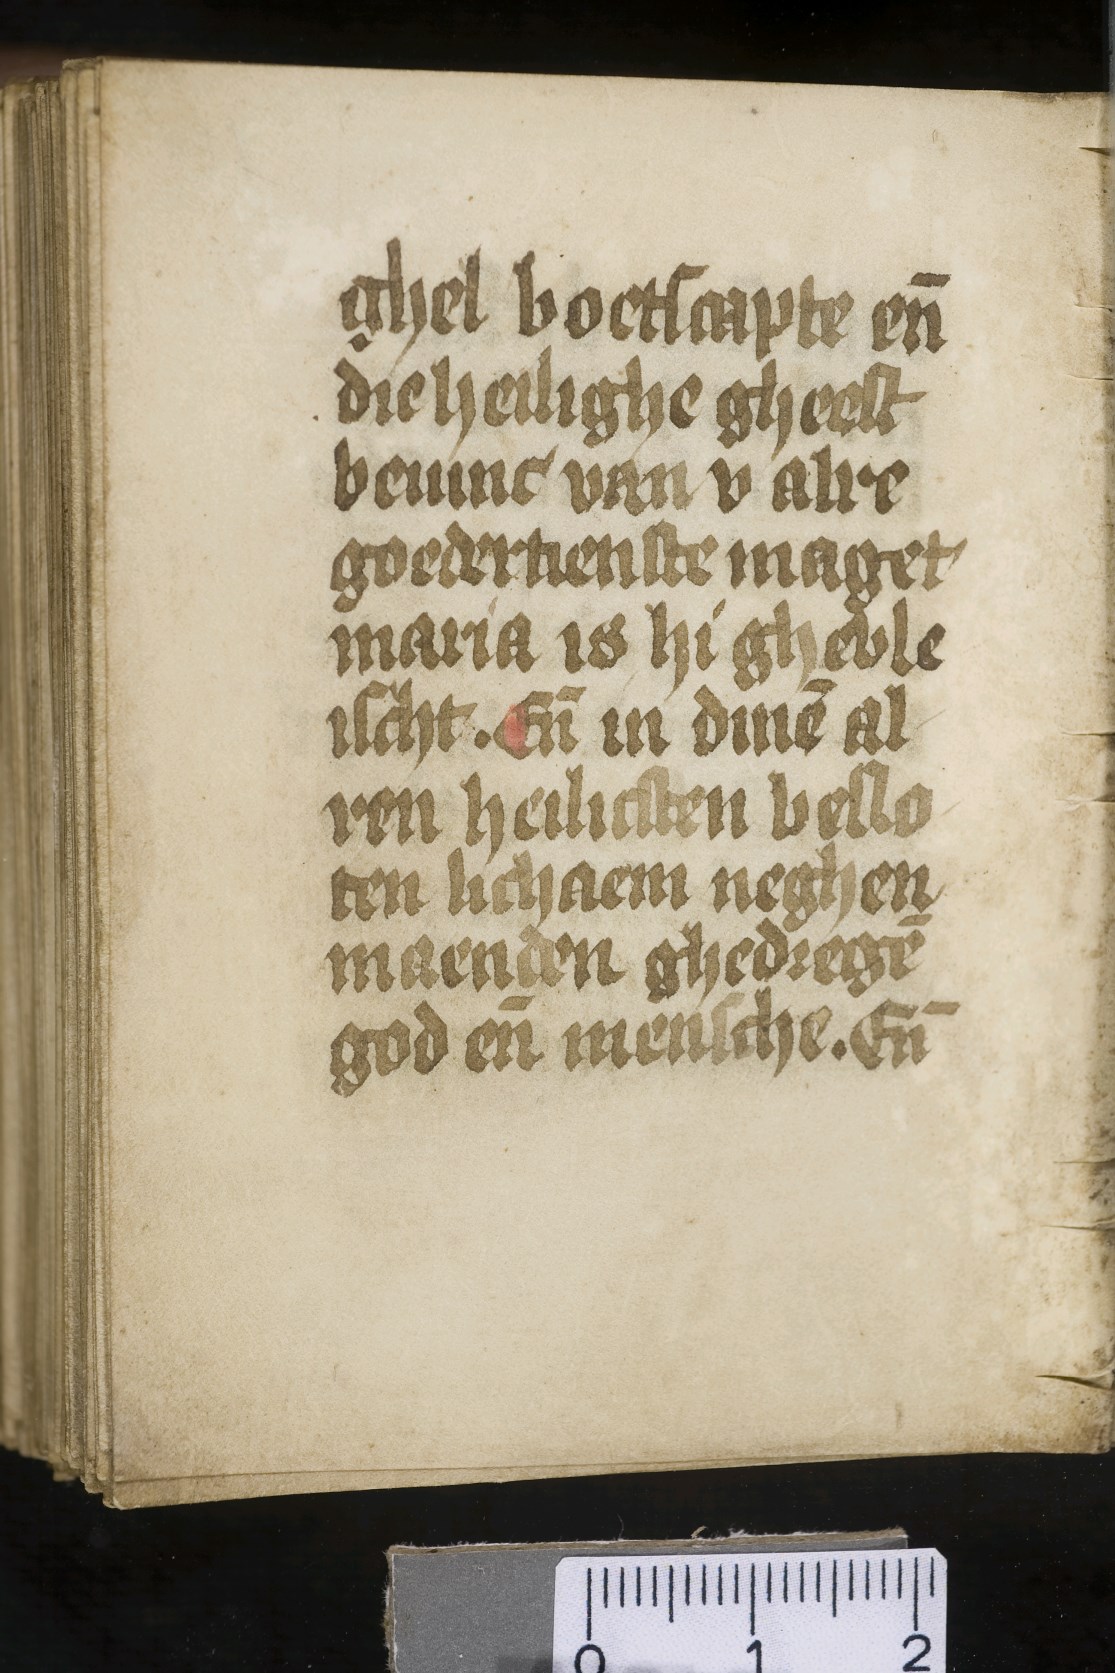 ghel boetscapte en̄
die heilighe gheest
beuinc van v alre
goedertienste maget
maria is hi ghevle
ischt. En̄ in dinē al
ren heilicsten beslo
ten lichaem neghen
maenden ghedregē
god en̄ mensche. En̄
0 1 2